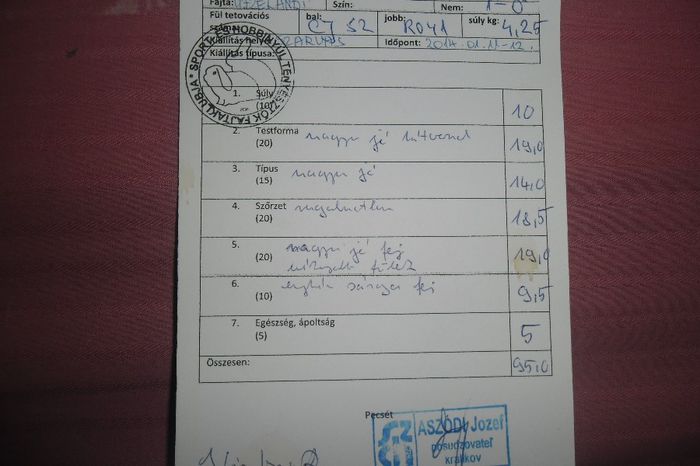 Fajta: ÚJZÉLANDI Szín: Nem: 1-0
Fül tetoválás bal: C7 52 jobb: R041 súly kg: 4,25
szám
Kiállítás helye: SZARVAS Időpont: 2014.01.11-12.
Kiállítás típusa:
SPORT- ÉS HOBBINYÚL TENYÉSZTŐK FAJTAKLUBJA
1. Súly 10
(10)
2. Testforma nagyon jó 19,0
(20)
3. Típus nagyon jó 14,0
(15)
4. Szőrzet rugalmatlan 18,5
(20)
5. nagyon jó fej 19,0
(20)
6. enyhén sárga fej 9,5
(10)
7. Egészség, ápoltság 5
(5)
Összesen: 95,0
Pecsét
SZCH
ASZÓDI Jozef
posudzovateľ
králikov